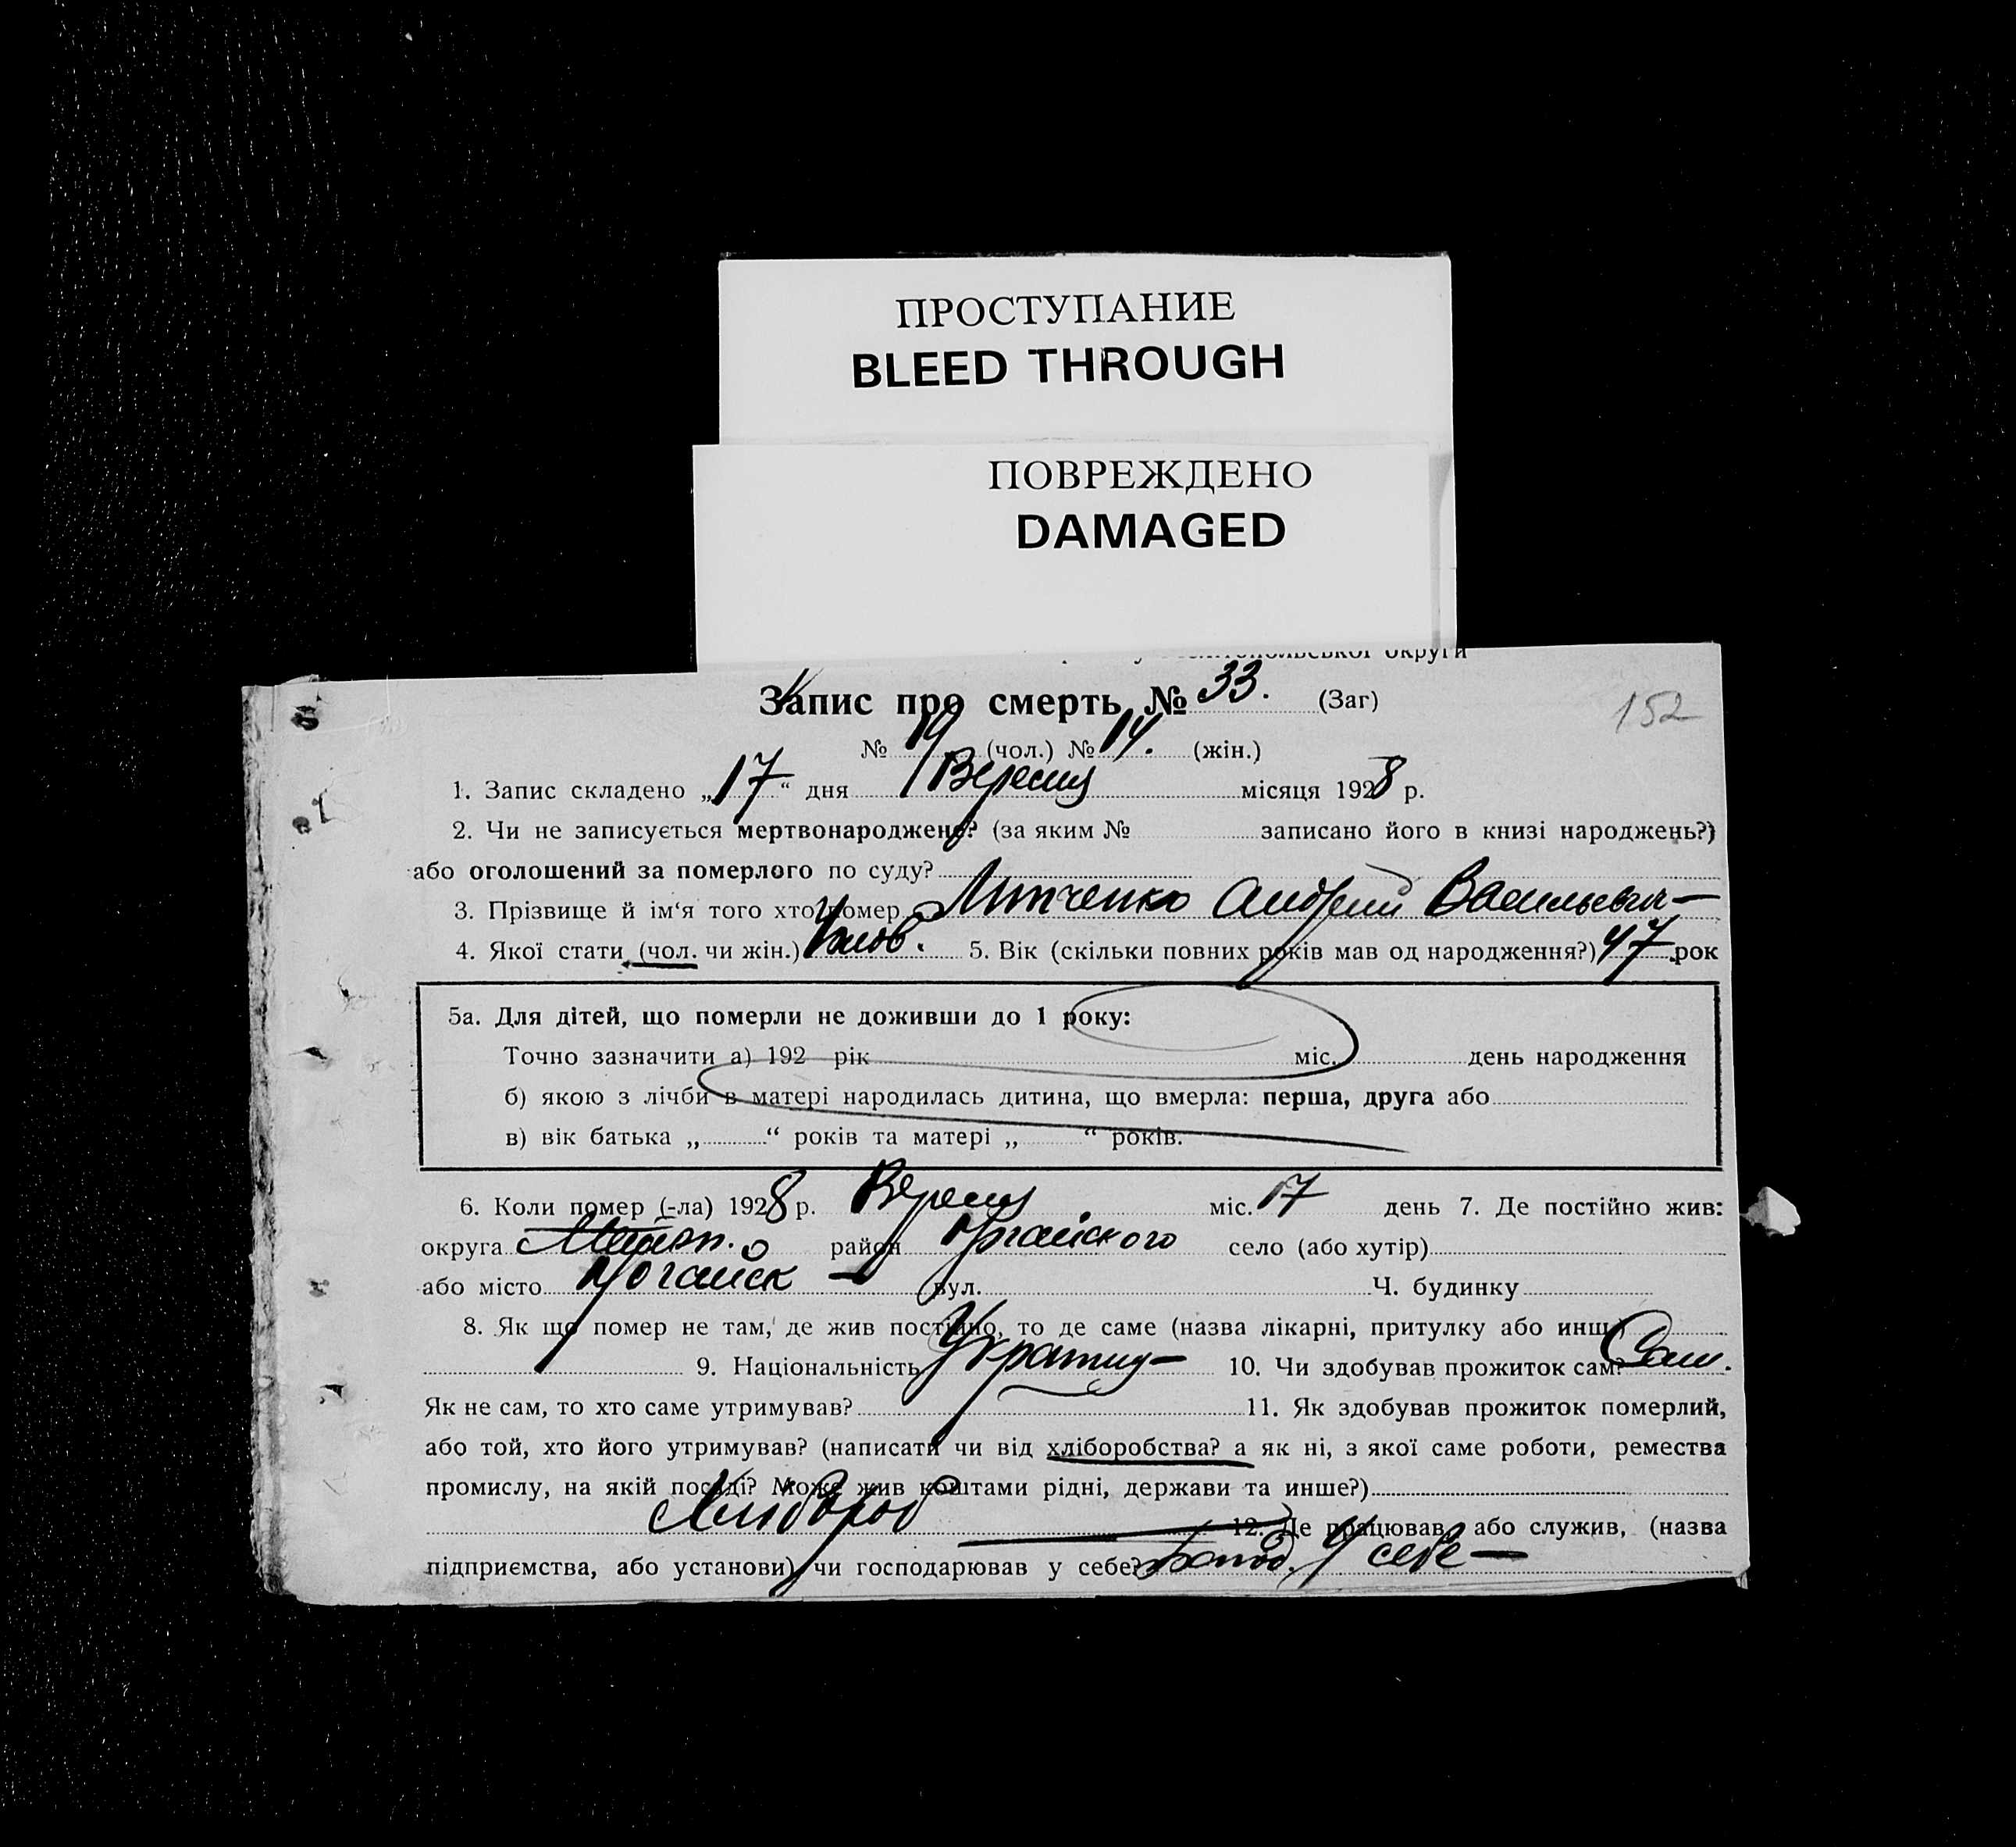 ПРОСТУПАНИЕ
BLEED THROUGH
ПОВРЕЖДЕНО
DAMAGED
округи
Запис про смерть № 33. (Заг)
152
№ 19 (чол.) № 14. (жін.)
1. Запис складено „17“ дня Вересня місяця 1928 р.
2. Чи не записується мертвонароджене? (за яким № записано його в книзі народжень?)
або оголошений за померлого по суду?
3. Прізвище й ім‘я того хто помер Литченко Андрій Васильевич—
4. Якої стати (чол. чи жін.) 5. Вік (скільки повних років мав од народження?) 47 рок
5а. Для дітей, що померли не доживши до 1 року:
Точно зазначити а) 192 рік міс. день народження
б) якою з лічби в матері народилась дитина, що вмерла: перша, друга або
в) вік батька „ “ років та матері „ “ років.
6. Коли помер (-ла) 1928 р. Вересня міс. 17 день 7. Де постійно жив:
округа район Ногайського село (або хутір)
або місто Ногайск — вул. Ч. будинку
8. Як що помер не там, де жив постійно, то де саме (назва лікарні, притулку або инш.)
9. Національність 10. Чи здобував прожиток сам? Сам.
Як не сам, то хто саме утримував? 11. Як здобував прожиток померлий,
або той, хто його утримував? (написати чи від хліборобства? а як ні, з якої саме роботи, ремества
промислу, на якій посаді? Може жив коштами рідні, держави та инше?)
Хлібороб
12. Де працював або служив, (назва
підприємства, або установи) чи господарював у себе? У себе —